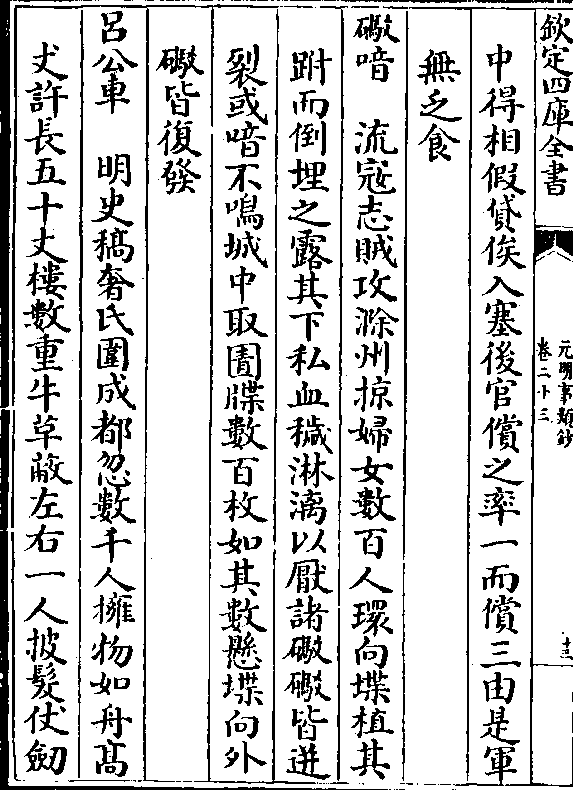 欽定四庫全書
元明事類鈔
卷二十三
十三
中得相假貸俟入塞後官償之率一而償三由是軍
無乏食
礮喑　流寇志賊攻滁州掠婦女數百人環向堞植其
跗而倒埋之露其下私血穢淋漓以厭諸礮礮皆迸
裂或喑不鳴城中取圊牒數百枚如其數懸堞向外
礮皆復發
呂公車　明史稿奢氏圍成都忽數千人擁物如舟高
丈許長五十丈樓數重牛草蔽左右一人披髮仗劍